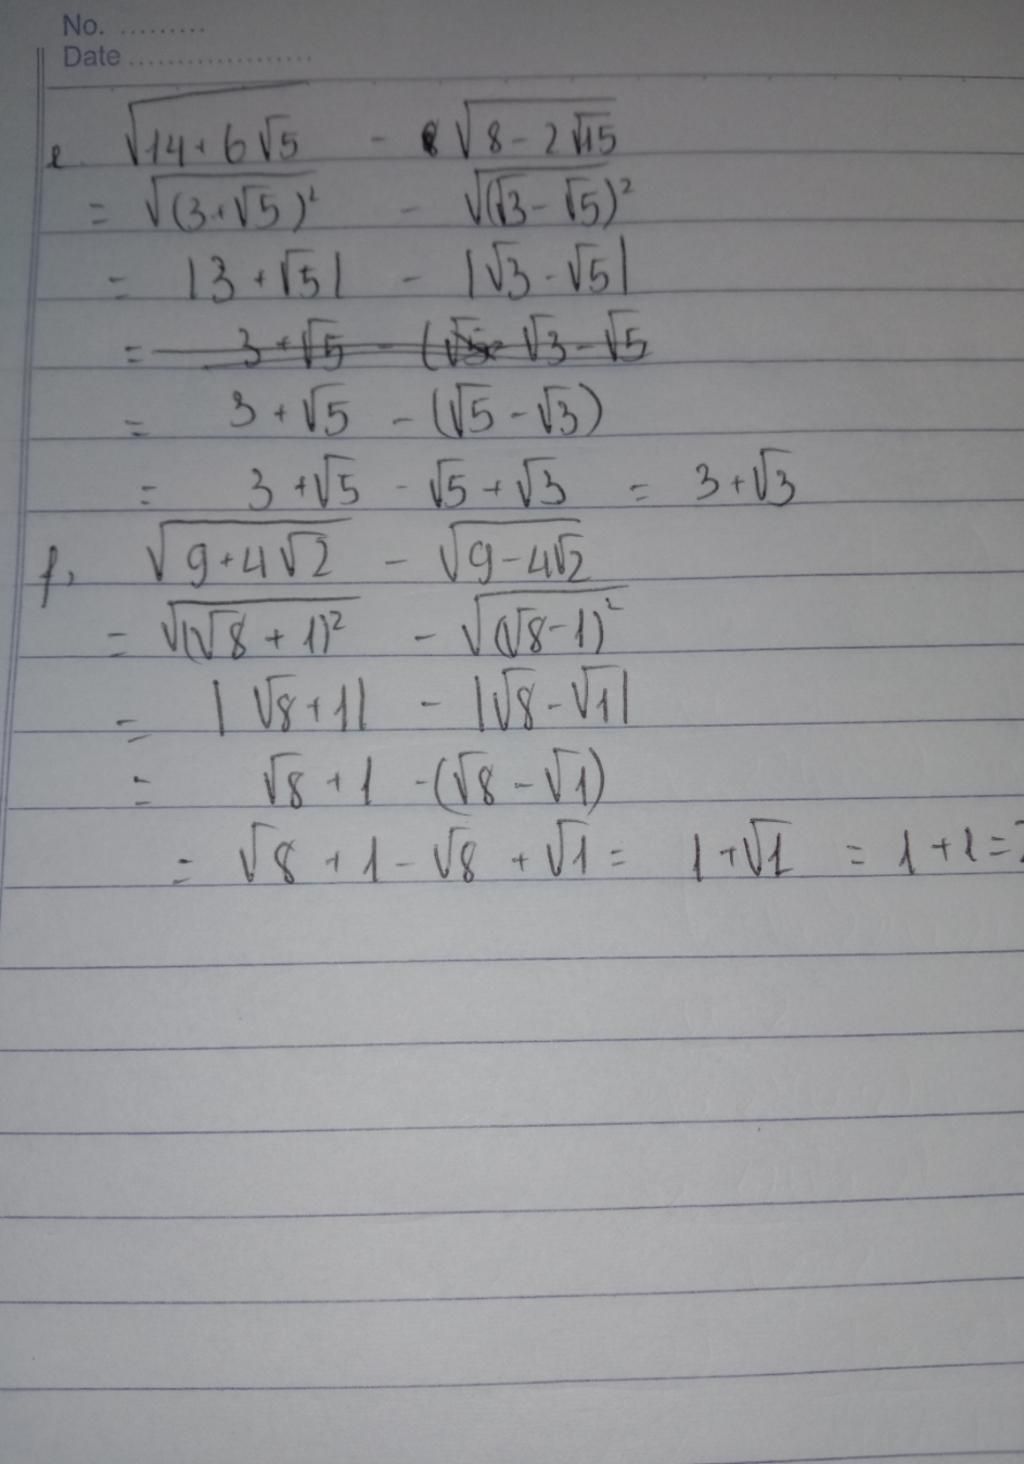 No. .........
Date ...................
e. √(14+6√5) - √(8-2√15)
= √((3+√5)²) - √((√3-√5)²)
= |3+√5| - |√3-√5|
= 3+√5 - (√5- √3-√5
= 3+√5 - (√5-√3)
= 3+√5 - √5+√3 = 3+√3
f, √(9+4√2) - √(9-4√2)
= √((√8+1)²) - √((√8-1)²)
= |√8+1| - |√8-√1|
= √8+1 -(√8-√1)
= √8+1-√8+√1= 1+√1 = 1+1=2